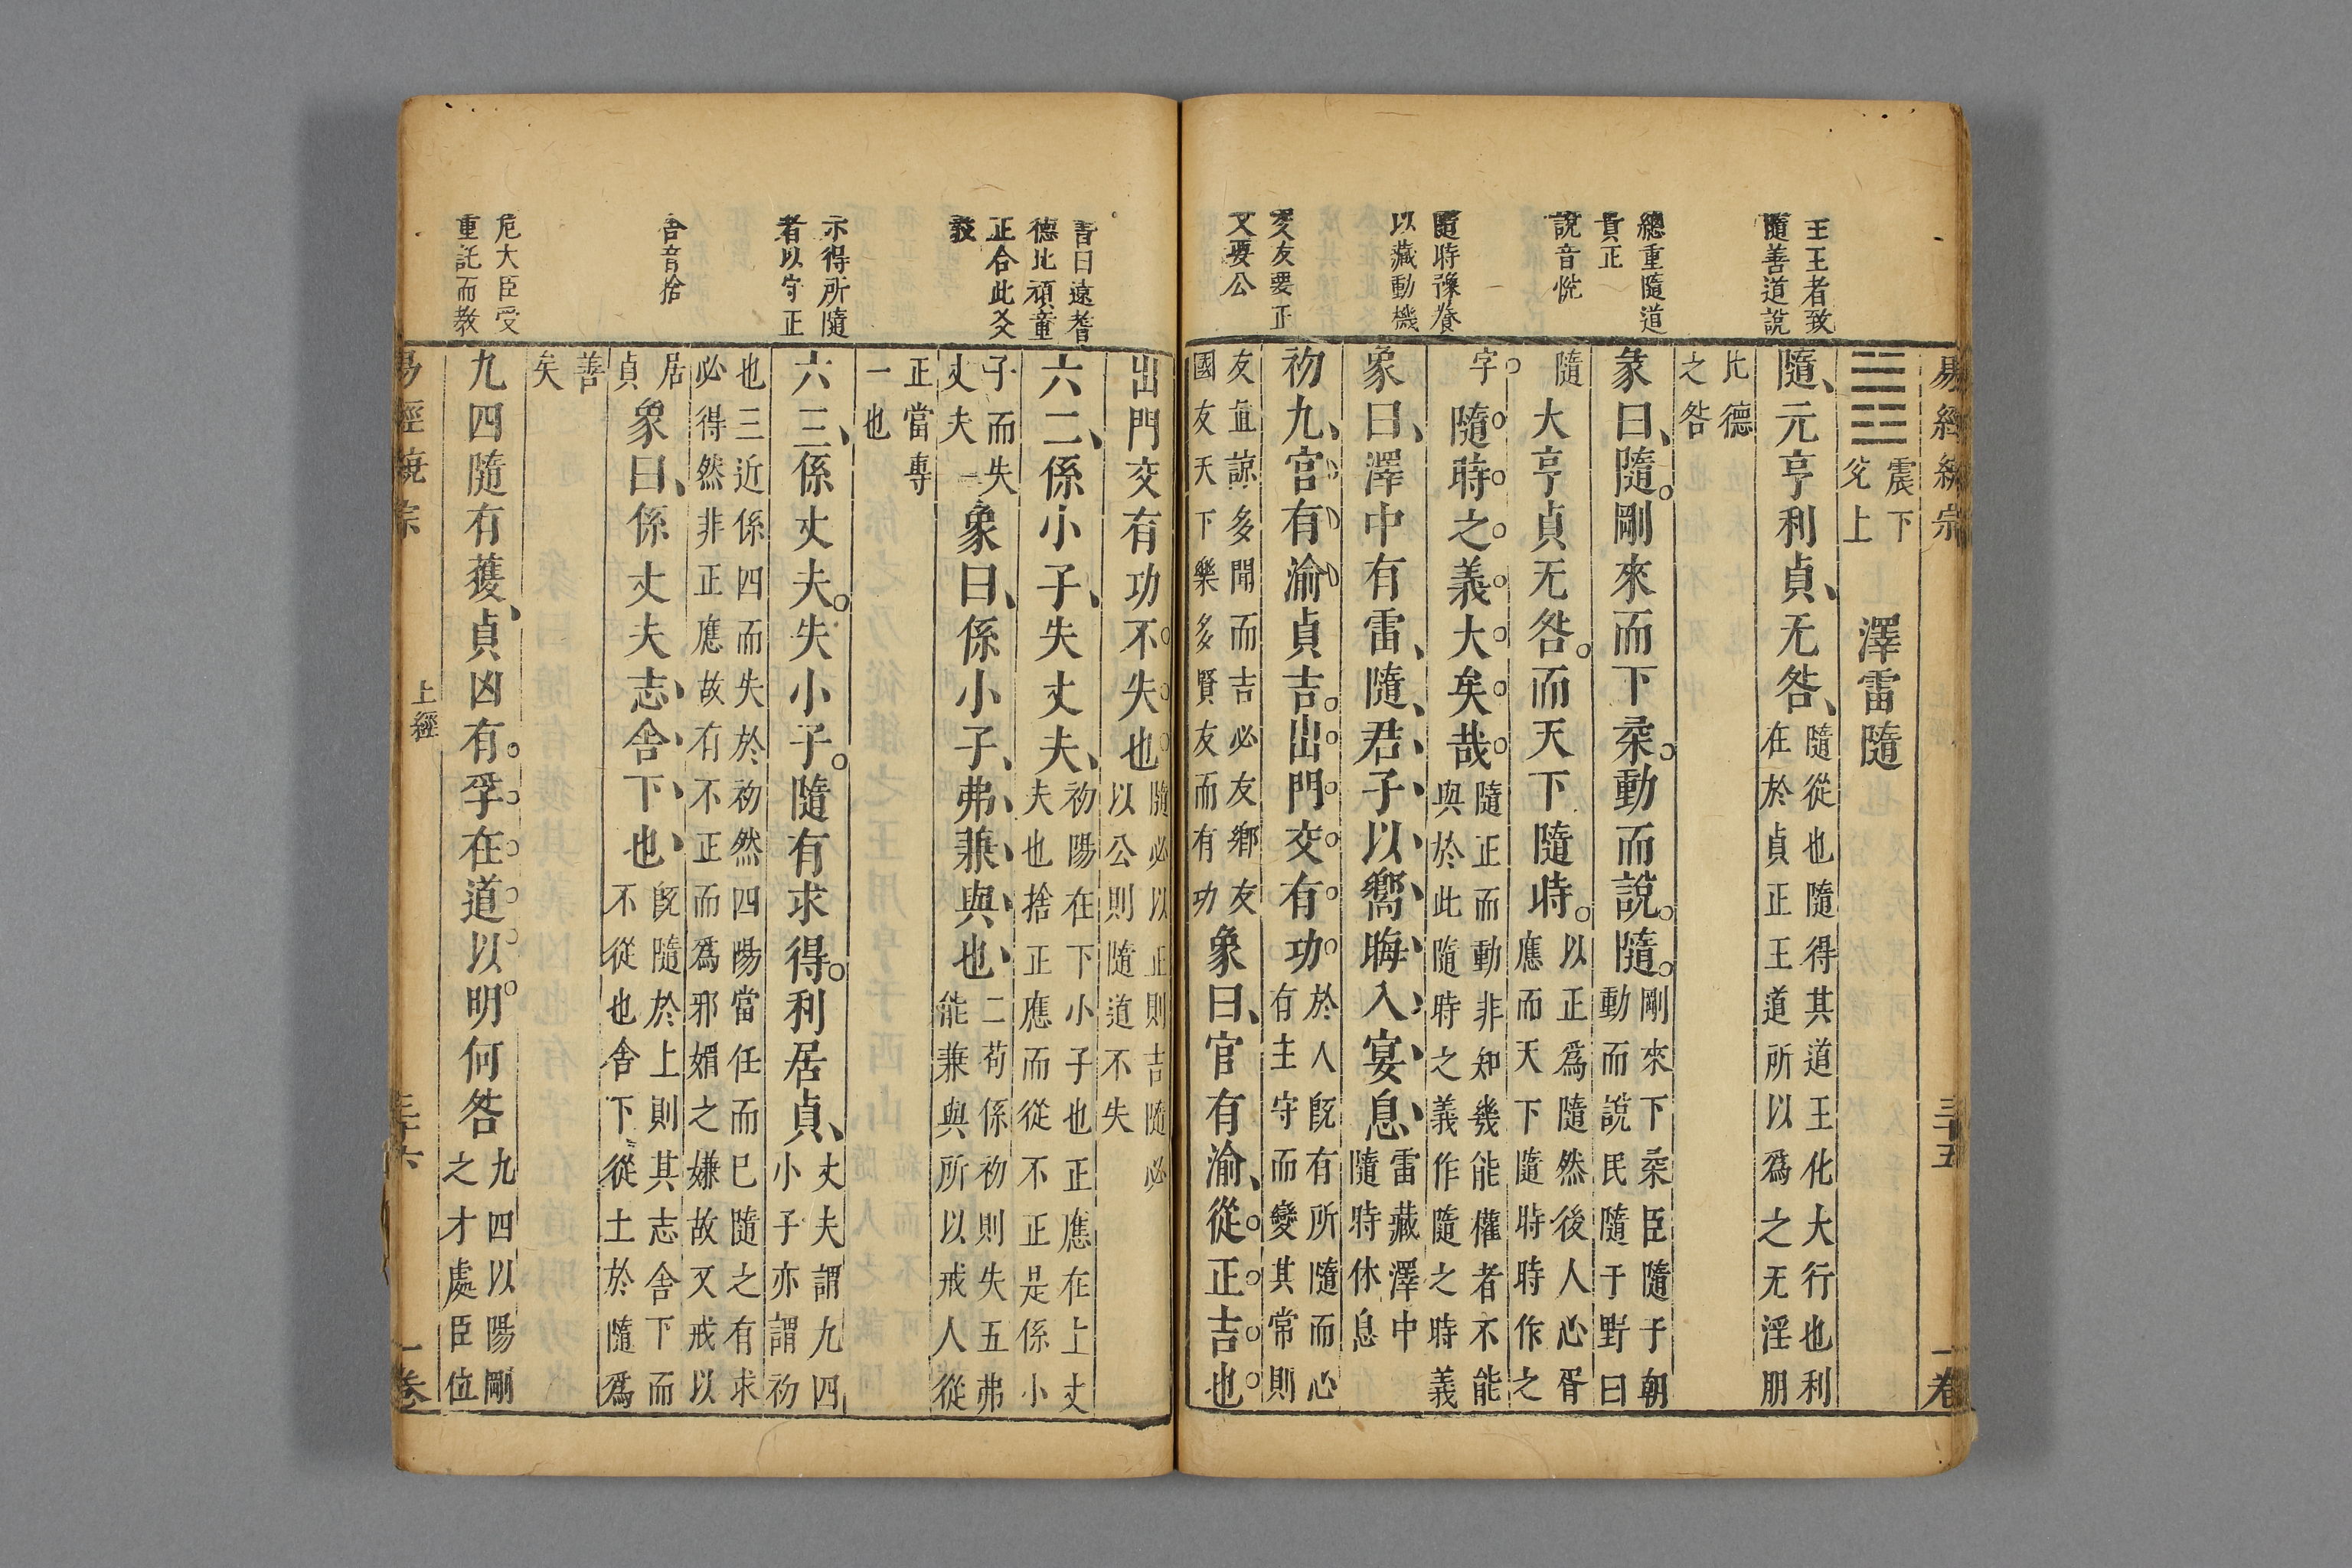 王王者致
隨善道說
總重隨道
貴正
說音恱
隨時豫養
以藏動機
交友要正
又要公
易經繞宗
三十五
一卷
震下
兌上
澤雷隨
隨、元亨利貞、无咎、
隨從也隨得其道王化大行也利
在於貞正王道所以爲之无淫朋
比德
之咎
彖曰、隨。剛來而下柔。動而說。隨。
剛來下柔臣隨于朝
動而說民隨于野曰
隨
大亨貞无咎。而天下隨時。
以正爲隨然後人心胥
應而天下隨時時作之
字。
隨時之義大矣哉
隨正而動非知幾能權者不能
與於此隨時之義作隨之時義
象曰、澤中有雷、隨、君子以嚮晦入宴息、
雷藏澤中
隨時休息
初九、官有渝貞吉。出門交有功。
於人旣有所隨而心
有主守而變其常則
友直諒多聞而吉必友鄉友
國友天下樂多賢友而有功
象曰、官有渝、從正吉也
言曰遠耆
德比頑童
正合此爻
義
示得所隨
者以守正
舍音捨
危大臣受
重託而教
出門交有功不失也
隨必以正則吉隨必
以公則隨道不失
六二、係小子、失丈夫、
初陽在下小子也正應在上丈
夫也捨正應而從不正是係小
子而失
丈夫
象曰、係小子、弗兼與也、
二苟係初則失五弗
能兼與所以戒人從
正當專
一也
六三、係丈夫。失小子。隨有求得。利居貞、
丈夫謂九四
小子亦謂初
也三近係四而失於初然四陽當任而已隨之有求
必得然非正應故有不正而爲邪媚之嫌故又戒以
居
貞
象曰、係丈夫志、舍下、也、
旣隨於上則其志舍下而
不從也舍下從土於隨爲
善
矣
九四隨有獲、貞凶有孚在道以明何咎
九四以陽剛
之才處臣位
上經
三十六
一卷